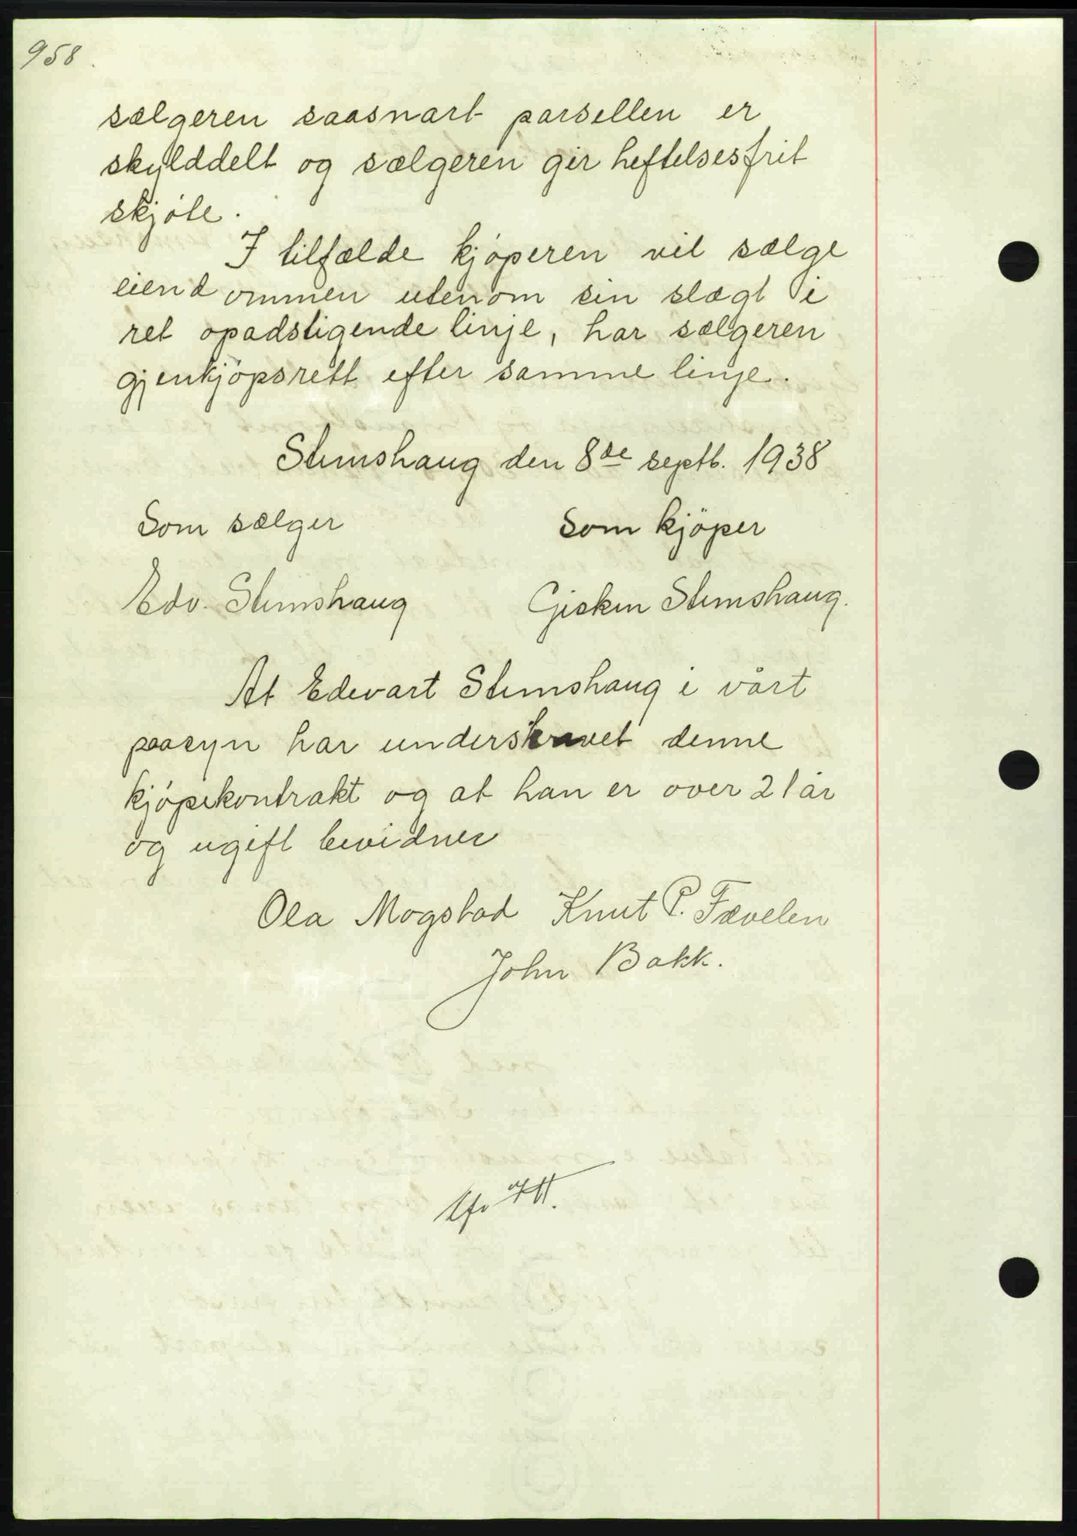 958.
sælgeren saasnart parsellen er
skylddelt og sælgeren gir heftelsesfrit
skjøte.
I tilfælde kjøperen vil sælge
eiendommen utenom sin slægt i
ret opadstigende linje, har sælgeren
gjenkjøpsrett efter samme linje.
Stimshaug den 8de septb. 1938
Som sælger Som kjøper
Edv. Stimshaug Gisken Stimshaug.
At Edevart Stimshaug i vårt
paasyn har underskrevet denne
kjøpekontrakt og at han er over 21 år
og ugift bevidner
Ola Mogstad Knut P. Fævelen
John Bakk.